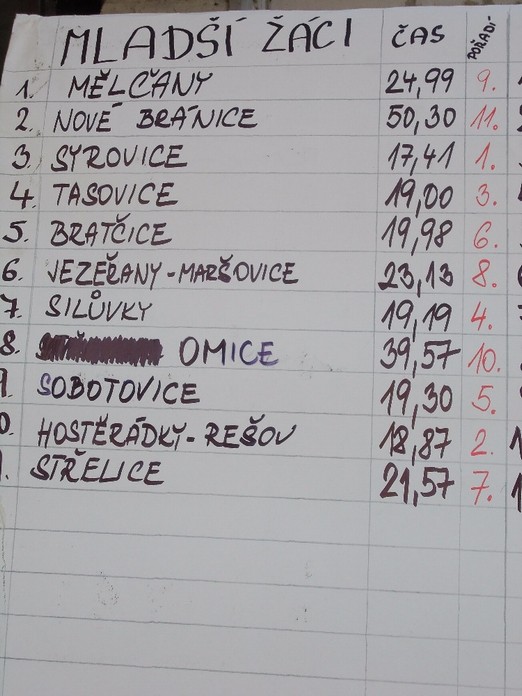 MLADŠÍ ŽÁCI ČAS POŘADÍ
1. MĚLČANY 24,99 9.
2. NOVÉ BRÁNICE 50,30 11.
3. SYROVICE 17,41 1.
4. TASOVICE 19,00 3.
5. BRATČICE 19,98 6.
6. JEZEŘANY-MARŠOVICE 23,13 8.
7. SILŮVKY 19,19 4.
8. OMICE 39,57 10.
9. SOBOTOVICE 19,30 5.
0. HOSTĚRÁDKY-REŠOV 18,87 2.
. STŘELICE 21,57 7.